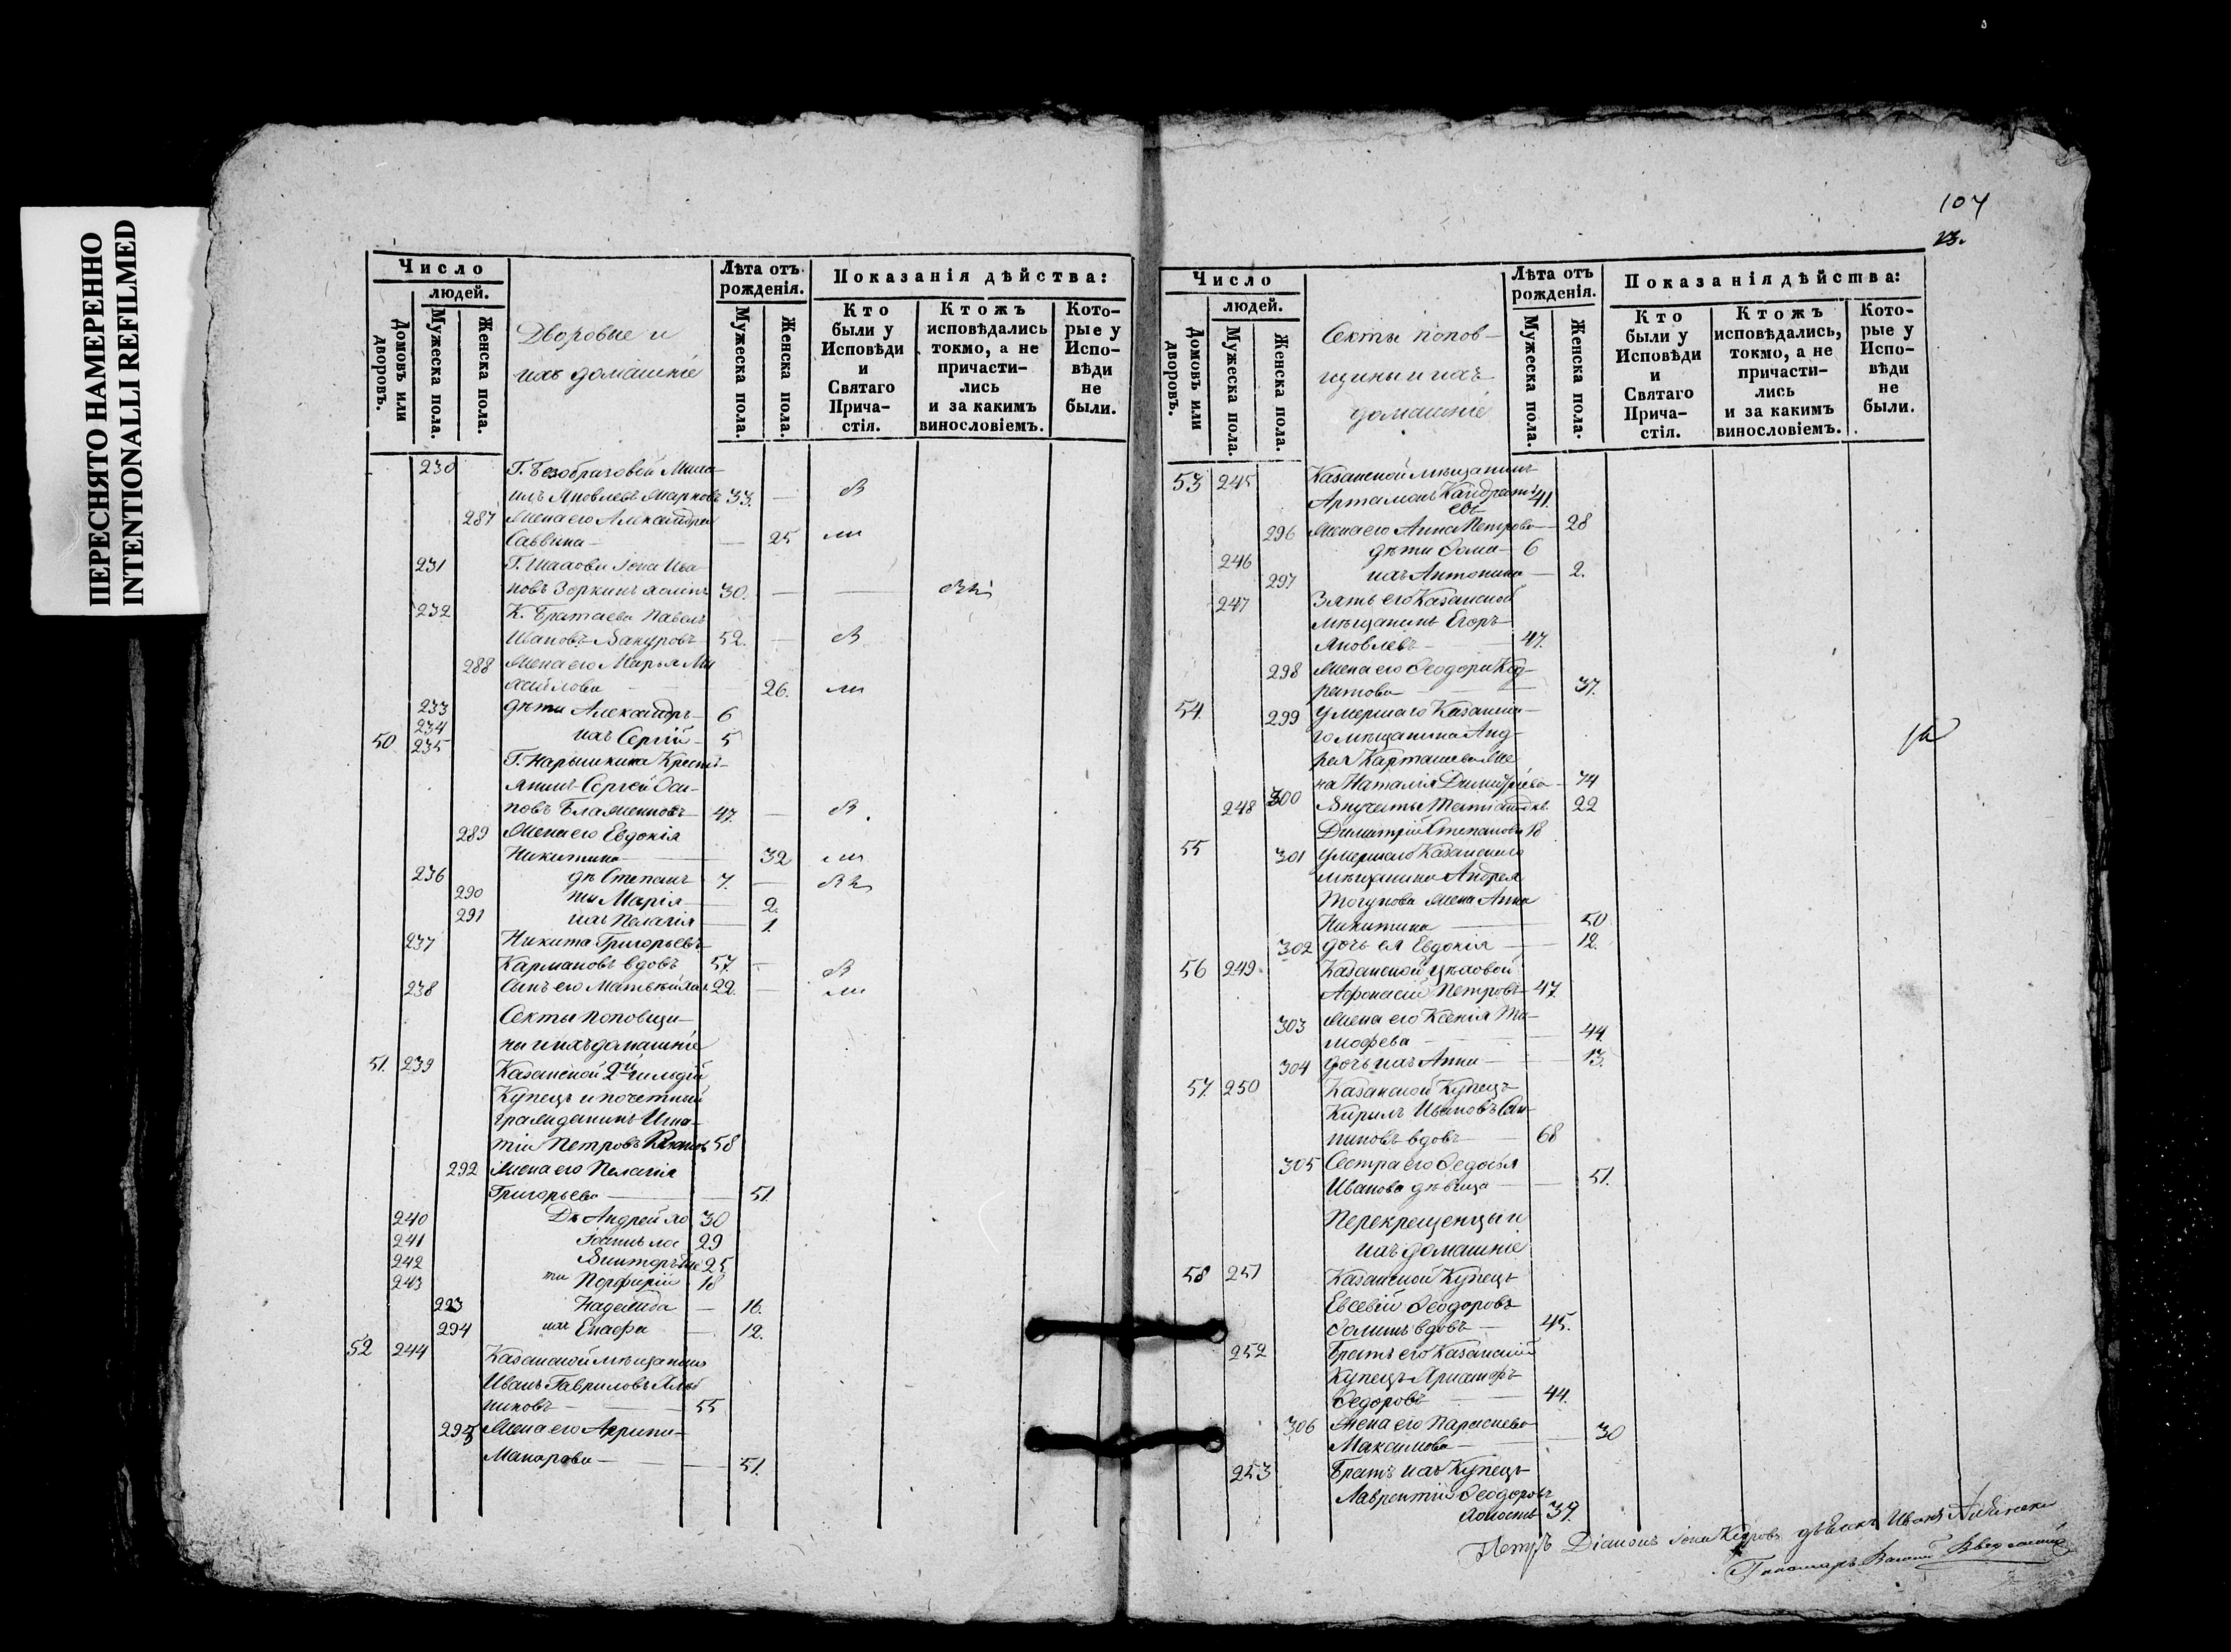 ПЕРЕСНЯТО НАМЕРЕННО
INTENTIONALLI REFILMED
Число
людей.
Домовъ или дворовъ.
Мужеска пола.
Женска пола.
Дворовые и
ихъ домашніе
Лѣта отъ рожденія.
Мужеска пола.
Женска пола.
Показанія дѣйства:
Кто были у Исповѣди и Святаго Прича-стія.
Ктожъ исповѣдались токмо, а не причасти-лись и за какимъ винословіемъ.
Кото-рые у Испо-вѣди не были.
230 Г. Безобразовой Миха-
илъ Яковлевъ Марковъ 33. — В
287 Жена его Александра
Саввина — 25 ли
231 Г. Іона Ива-
новъ Зоркинъ холостъ 30. —
232 К. Братаева Павелъ
Ивановъ 52. — В
288 Жена его Марья Ми
хайлова 26. ли
233 дѣти Александръ 6
234 ихъ Сергій 5
50 235 Г. Нарышкина Кресть-
янинъ Сергей Оси-
повъ 47. — В.
289 Жена его Евдокія
Никитина 32 ли
236 дѣ Степанъ 7. —
290 ти Марія 2.
291 ихъ Пелагія 1.
237 Никита Григорьевъ
Кармановъ вдовъ 57. — В
238 Сынъ его Матвѣй хол. 22. — ли
Секты поповщи-
ны и ихъ домашніе
51. 239 Казанской 2й гильдіи
Купецъ и почетный
гражданинъ Игна-
тій Петровъ 58
292 Жена его Пелагія
Григорьева 51.
240 Дѣ Андрей хо 30
241 Іоаннъ ло 29
242 Викторъ 25
243 ти Порфирій 18
293 Надежда — 16.
294 ихъ — 12.
52 244 Казанской мѣщанинъ
Иванъ Гавриловъ Хлѣб
никовъ 55
295 Жена его Агрипи-
Макарова 51.
104
23.
Число
людей.
Домовъ или дворовъ.
Мужеска пола.
Женска пола.
Секты попов-
щины и ихъ
домашніе
Лѣта отъ рожденія.
Мужеска пола.
Женска пола.
Показанія дѣйства:
Кто были у Исповѣди и Святаго Прича-стія.
Ктожъ исповѣдались, токмо, а не причасти-лись и за какимъ винословіемъ.
Кото-рые у Испо-вѣди не были.
53 245 Казанской мѣщанинъ
Артамонъ Кандратьевъ 41.
296 Жена его Анна Петрова 28
246 дѣти Ѳома 6
297 ихъ Антонина 2.
247 Зять его Казанской
мѣщанинъ Егоръ
Яковлевъ 47.
298 Жена его Ѳеодора Код-
ратова 37.
54. 299 Умершаго Казанска-
го мѣщанина Анд-
рея Карташева же
на Наталія Димитріева 74
248 300 Внучаты 22
Димитрій Степановы 18
55 301 Умершаго Казанскаго
мѣщанина Андрея
жена Анна
Никитина 50
302 дочь ея Евдокія 12.
56 249 Казанской цѣховой
Аѳонасій Петровъ 47.
303 Жена его Ксенія Ти-
моѳева 44.
304 дочь ихъ Анна 13.
57. 250 Казанской Купецъ
Кирилъ Ивановъ
вдовъ 68
305 Сестра его Ѳедосья
Иванова дѣвица 51.
Перекрещенцы и
ихъ домашніе
58 251 Казанской Купецъ
Евсевій Ѳеодоровъ
Ѳоминъ вдовъ 45.
252 Братъ его Казанскій
Купецъ
Ѳедоровъ 44.
306 Жена его Парасковья
Максимова 30
253 Братъ ихъ Купецъ
Лаврентій Ѳеодоровъ
холостъ 37.
Петръ Діаконъ Іона Кедровъ дьячекъ Иванъ
Пономарь Введенскій